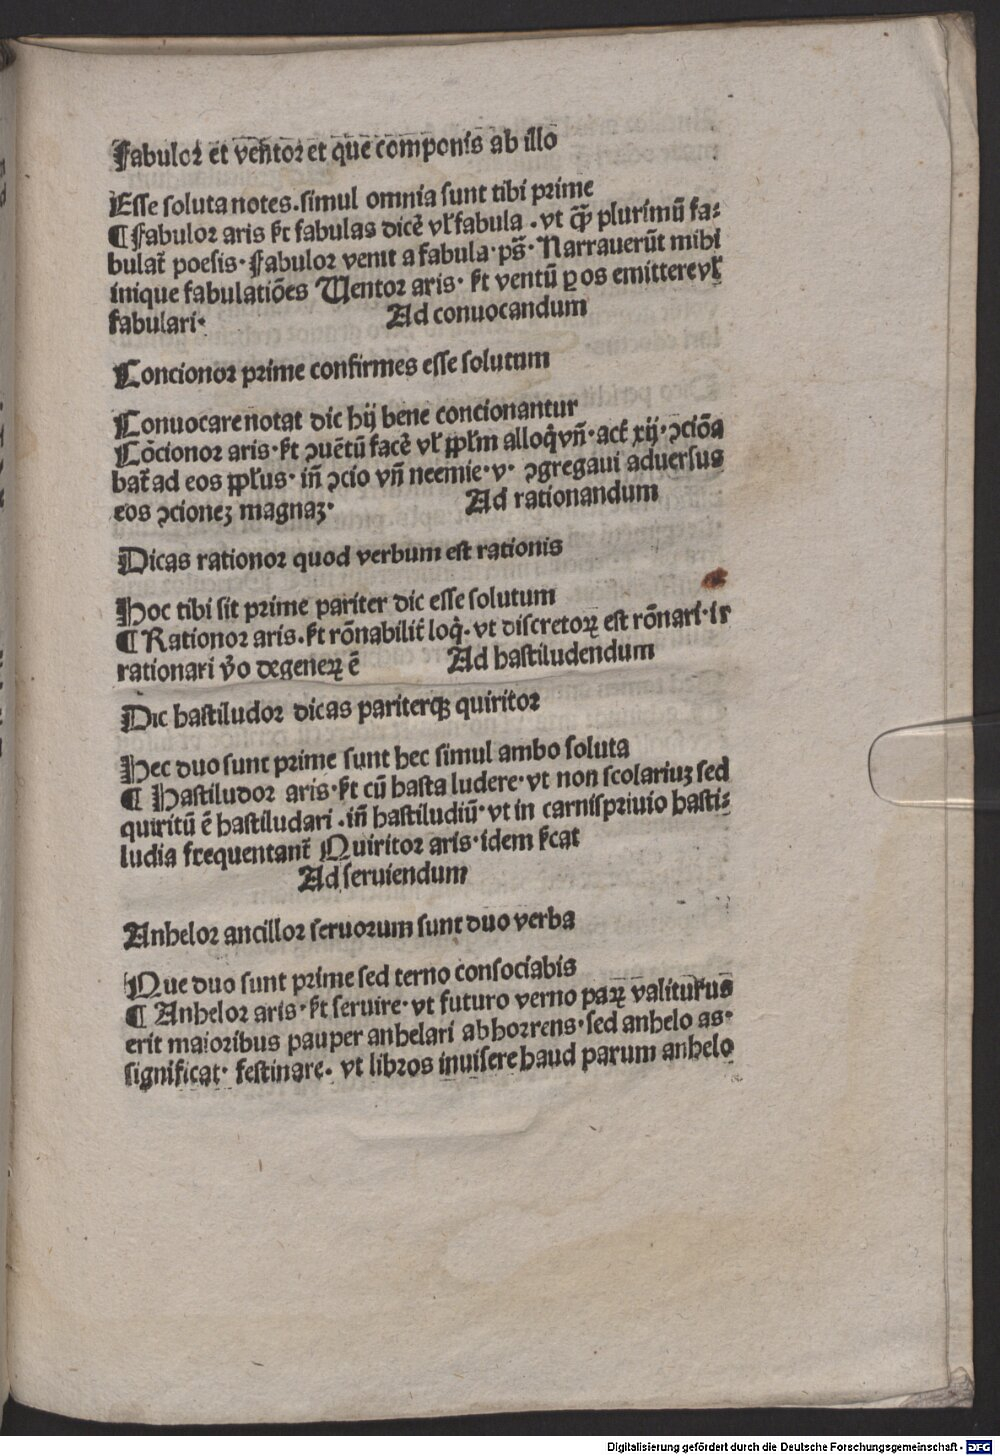 Fabulor et ventor et que componis ab illo
Esse soluta notes. simul omnia sunt tibi prime
¶ Fabulor aris ſᷓt fabulas dicē vl̄ fabula. vt qᷓ plurimū fa⸗
bulat᷑ poesis. Fabulor venit a fabula. ps̄. Narrauerūt mihi
inique fabulatiōes Ventor aris. ſt ventū ꝑ os emittere vl̄
fabulari. Ad conuocandum
Concionor prime confirmes esse solutum
Conuocare notat dic hij bene concionantur
Cōcionor aris. ſt ꝯuētū facē vl̄ ppl̄m alloq̇ vn̄. act̄ xij. ꝯciōa
bat᷑ ad eos ppl̄us. in̄ ꝯcio vn̄ neemie. v. ꝯgregaui aduersus
eos ꝯcionez magnaz. Ad rationandum
Dicas rationor quod verbum est rationis
Hoc tibi sit prime pariter dic esse solutum
¶ Rationor aris. ſt rōnabilit᷑ loq̇. vt discretoꝝ est rōnari. ir
rationari v̊o degeneꝝ ē Ad hastiludendum
Dic hastiludor dicas pariterqꝫ quiritor
Hec duo sunt prime sunt hec simul ambo soluta
¶ Hastiludor aris. ſt cū hasta ludere. vt non scolariuz sed
quiritū ē hastiludari. in̄ hastiludiū. vt in carnispriuio hasti⸗
ludia frequentant᷑ Quiritor aris. idem ſcat
Ad seruiendum
Anhelor ancillor seruorum sunt duo verba
Que duo sunt prime sed terno consociabis
¶ Anhelor aris. ſt seruire. vt futuro verno paꝝ valiturus
erit maioribus pauper anhelari abhorrens. sed anhelo as.
significat. festinare. vt libros inuisere haud parum anhelo
Digitalisierung gefördert durch die Deutsche Forschungsgemeinschaft - DFG